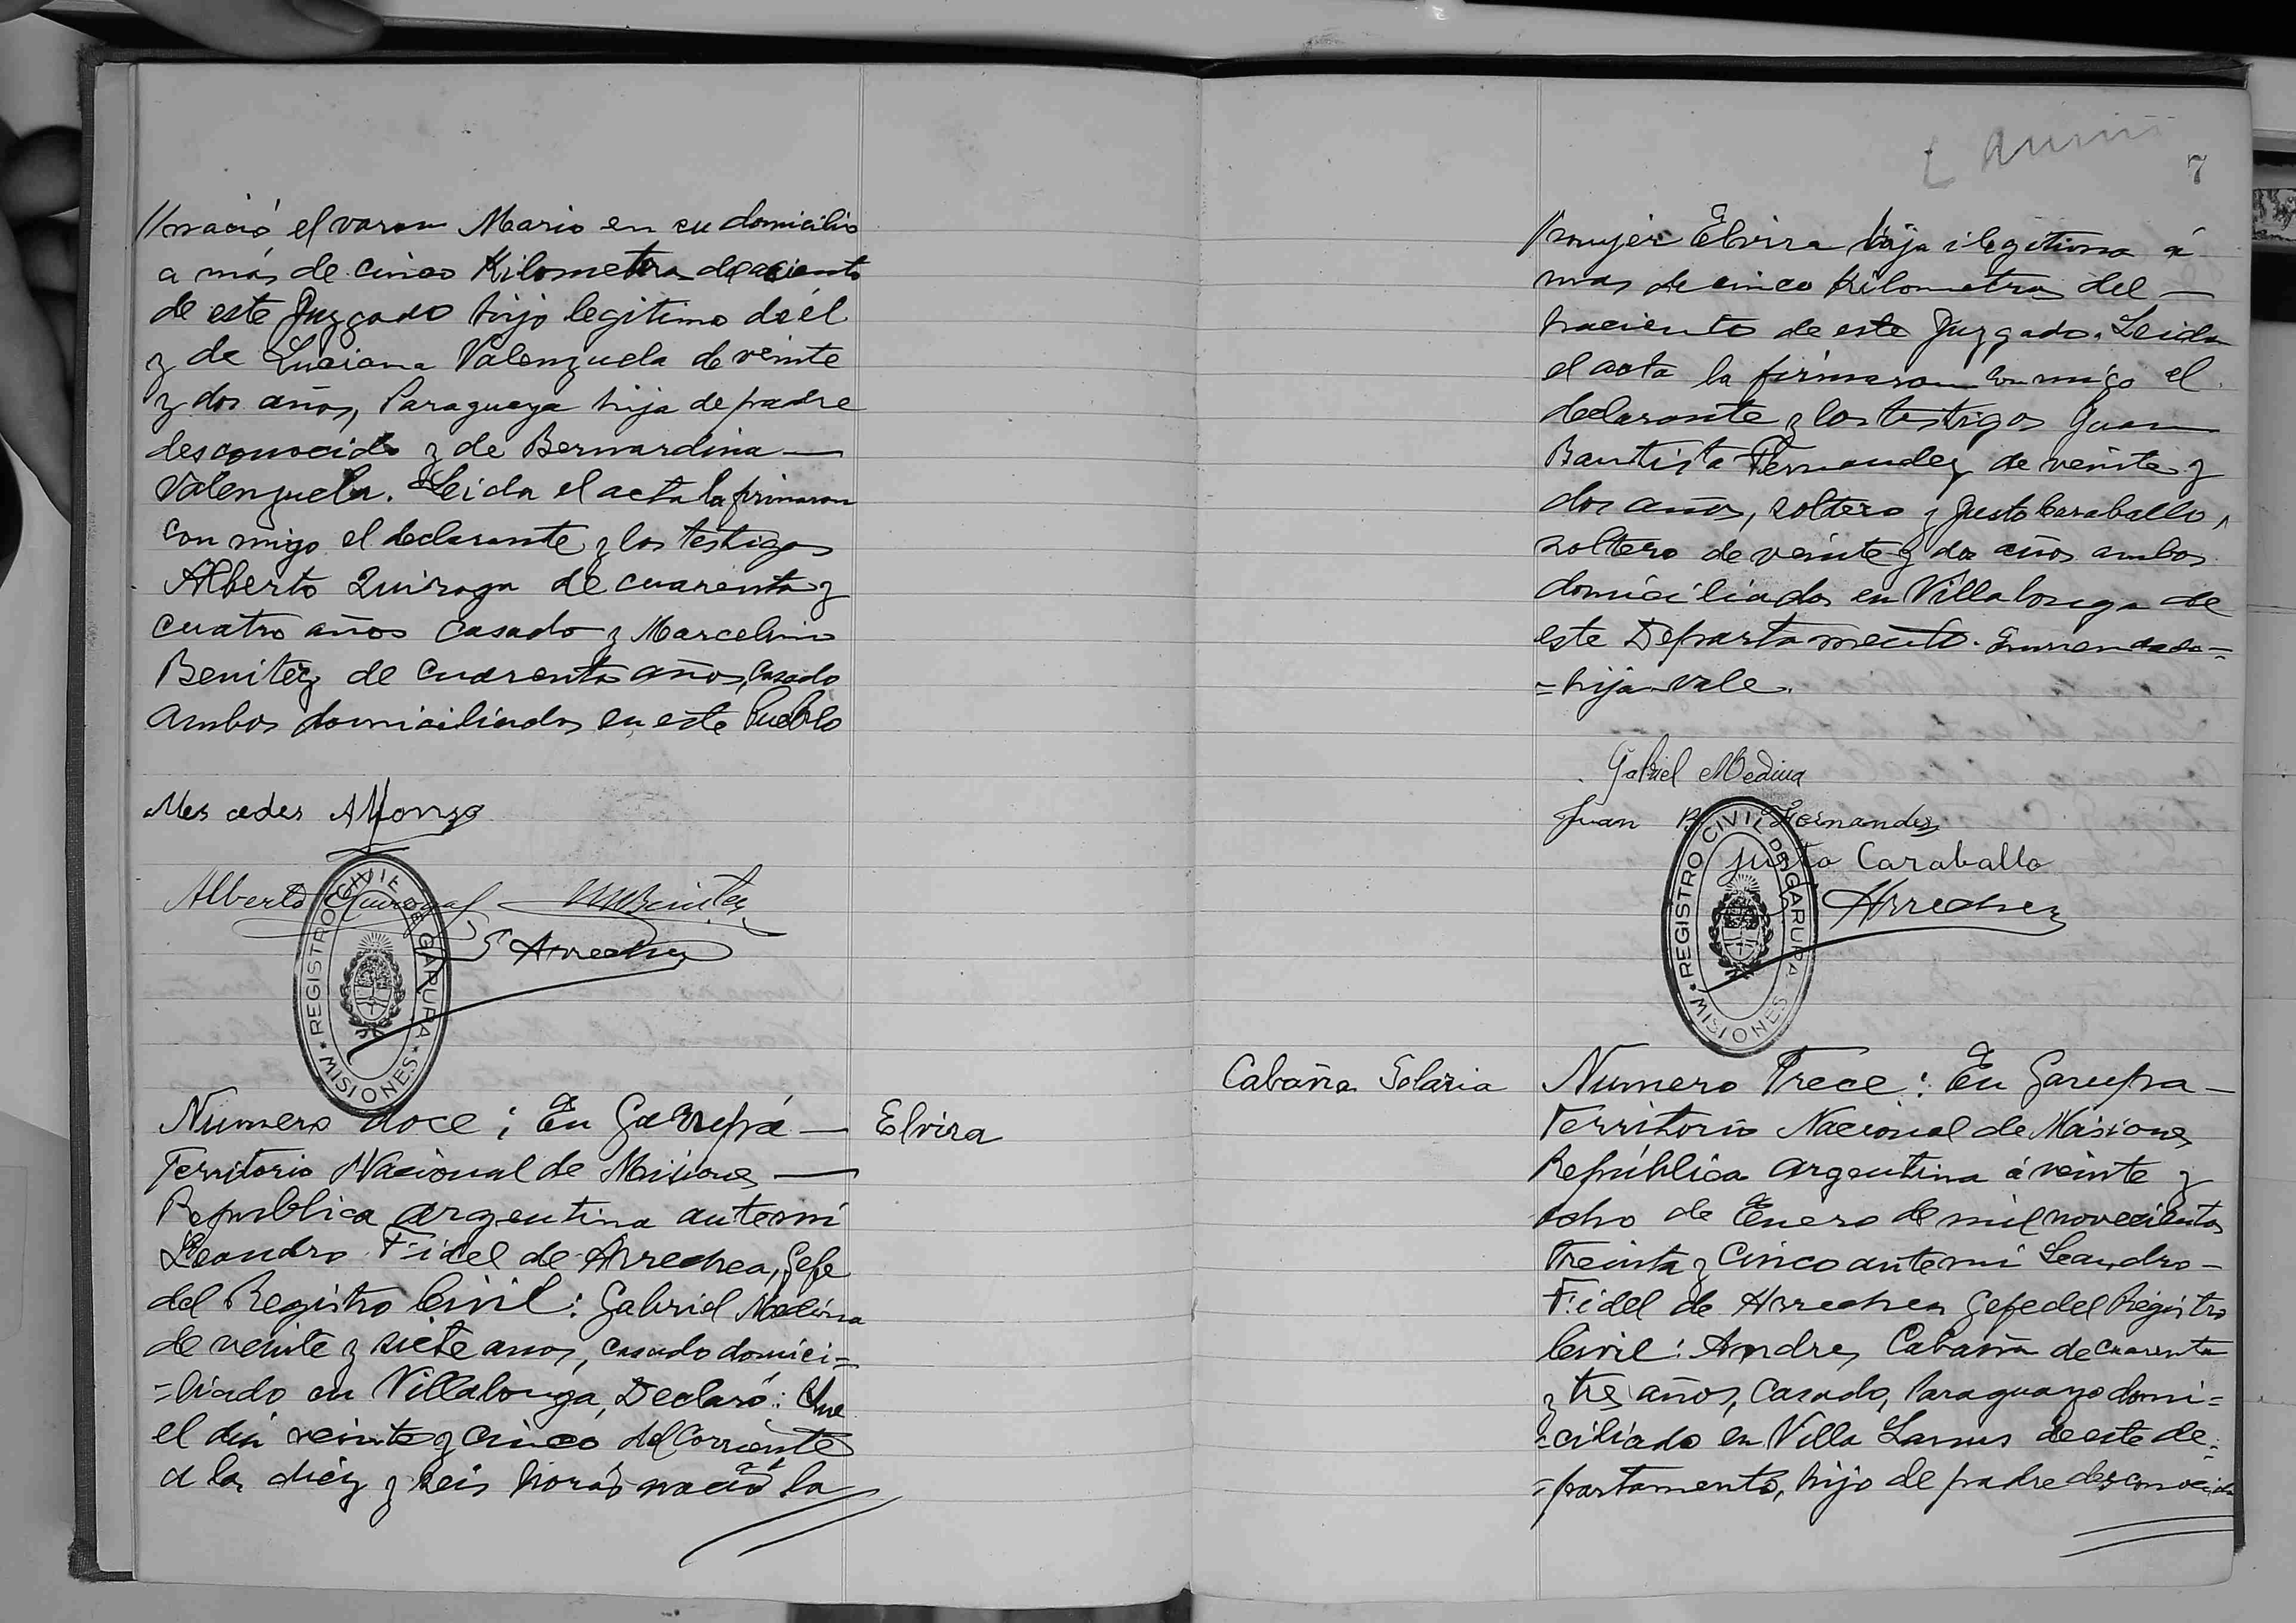 //nació el varon Mario en su domicilio
a más de cinco Kilometros de aciento
de este Juzgado hijo legitimo de él
y de Luciana Valenzuela de veinte
y dos años, Paraguaya hija de padre
desconocido y de Bernardina —
Valenzuela. Leida el acta la firmaron
con migo el declarante y los testigos
Alberto Quiroga de cuarenta y
cuatro años casado y Marcelino
Benitez de cuarenta años, casado
ambos domiciliados en este Pueblo
Mercedes Alfonzo
Alberto Quiroga MBenitez
Arrechea
REGISTRO CIVIL DE GARUPA
* MISIONES *
Numero doce; En Garupá —
Territorio Nacional de Misiones —
Republica Argentina ante mi
Leandro Fidel de Arrechea, Gefe
del Registro Civil: Gabriel Medina
de veinte y siete años, casado domici=
=liado en Villalonga, Declaró: Que
el dia veinte y cinco del Corriente
a las diez y seis horas nació la //
Elvira
7
//mujer Elvira hija ilegitima á
mas de cinco Kilometros del —
haciento de este Juzgado. Leida
el acta la firmaron conmigo el
declarante y los testigos Juan
Bautista Fernandez de veinte y
dos años, soltero y Justo Caraballo,
soltero de veinte y dos años ambos
domiciliados en Villalonga de
este Departamento. Enmendado=
=hija vale.
Gabriel Medina
Juan B Fernandez
Justo Caraballo
Arrechea
REGISTRO CIVIL DE GARUPA
* MISIONES *
Cabaña
Numero Trece: En Garupa —
Territorio Nacional de Misiones
República Argentina á veinte y
ocho de Enero de mil novecientos
treinta y cinco ante mi Leandro —
Fidel de Arrechea Gefe del Registro
Civil: Andres Cabaña de cuarenta
y tres años, casado, Paraguayo domi=
=ciliado en Villa Lanus de este de=
=partamento, hijo de padre desconocido